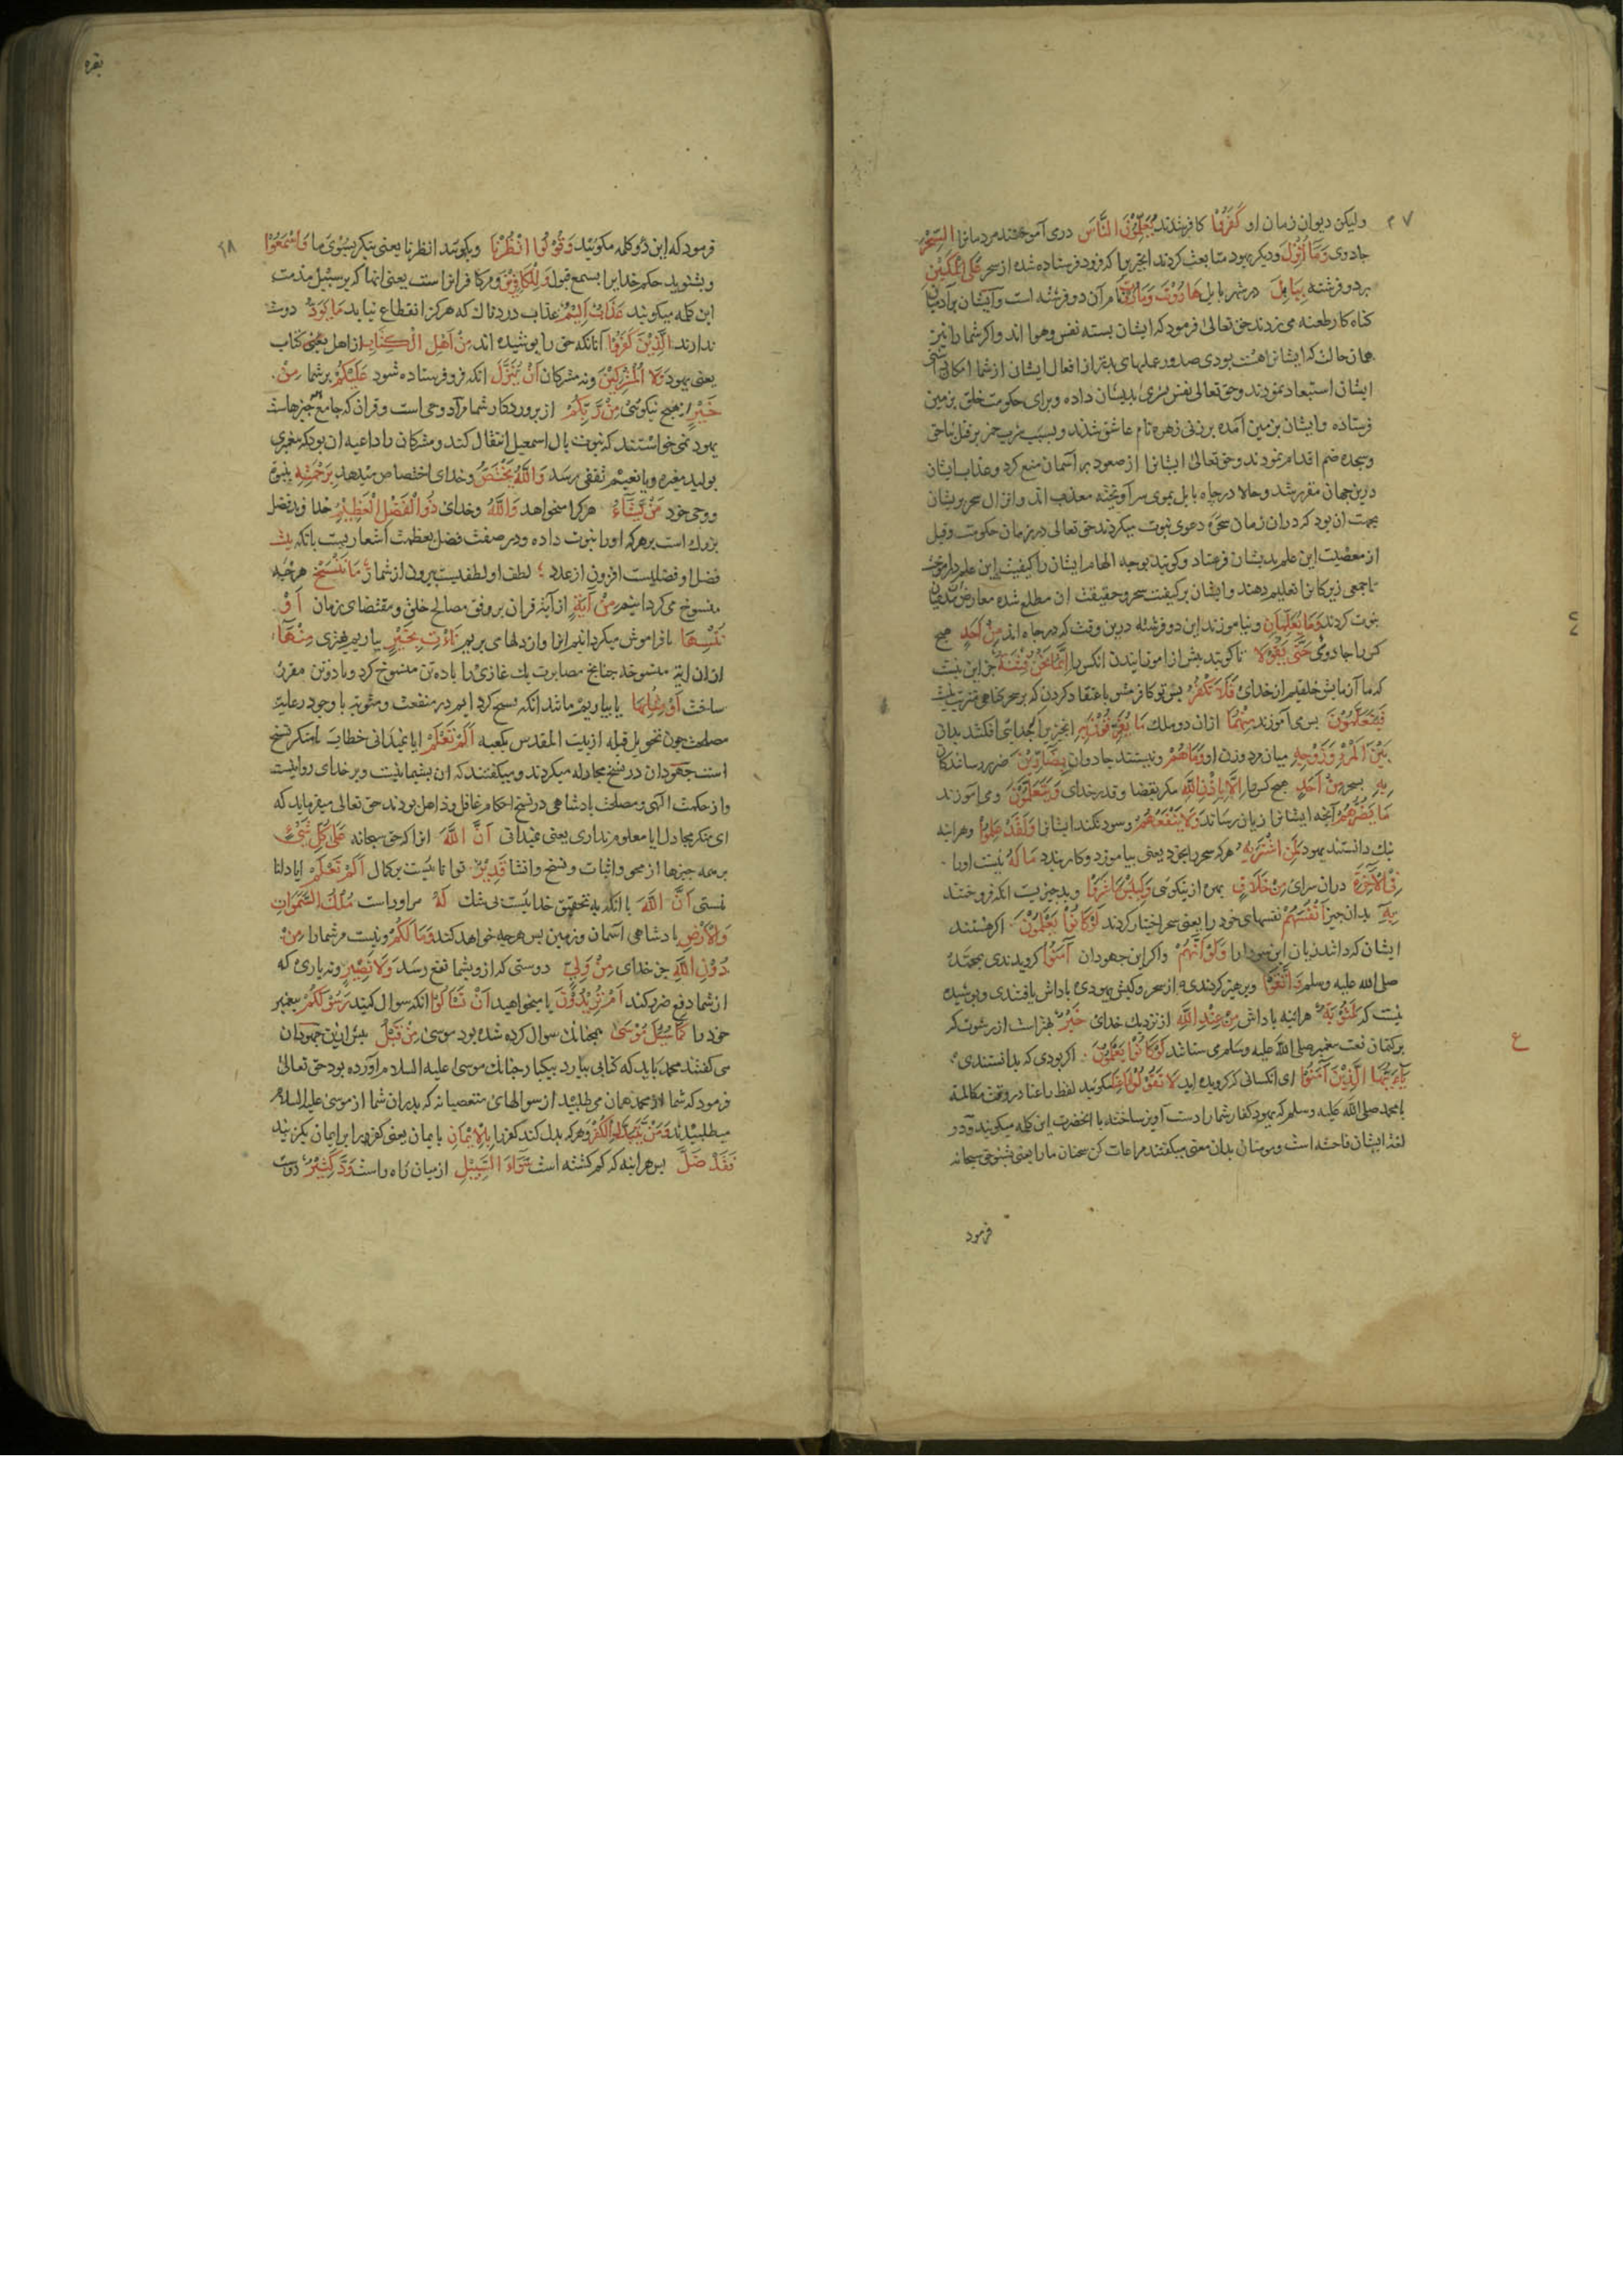 ۲۷
ولیکن دیوان زمان او كَفَرُوْا کافر شدند يُعَلِّمُوْنَ النَّاسَ در می آموختند مردمانرا السِّحْرَ
جادوی وَمَا اُنْزِلَ و دیکر یهود متابعت کردند انچیزیرا که فرود فرستاده شده از سحر عَلَى الْمَلَكَيْنِ
بر دو فرشته بِبَابِلَ در شهر بابل هَارُوْتَ وَمَارُوْتَ نام آن دو فرشته است و ایشان بر آدمیان
کناه کار طعنه می زدند حق تعالی فرمود که ایشان بسته نفس و هوا اند و اکر شما را نیز
همان حالت که ایشانرا هست بودی صدور عملهای بدتر از افعال ایشان از شما امکانی
ایشان استبعاد نمودند و حق تعالی نفس بشری بدیشان داده و برای حکومت خلق بزمین
فرستاده و ایشان بزمین آمده بر زنی زهره نام عاشق شدند و بسبب شرب خمر بر قتل ناحق
وسجده صنم اقدام نمودند و حق تعالی ایشانرا از صعود بر آسمان منع کرد و عذاب ایشان
درین جهان مقرر شد و حالا در چاه بابل بموی سر آویخته معذب اند و انزال سحر بریشان
بجهت ان بود که دران زمان سحره دعوی نبوت میکردند حق تعالی در زمان حکومت و قبل
از معصیت این علم بدیشان فرستاد و کویند بوجه الهام ایشان را کیفیت این علم در آموخت
تا جمعی زیرکانرا تعلیم دهند و ایشان بر کیفیت سحر و حقیقت ان مطلع شده معارضه مدعیان
نبوت کردند وَمَا يُعَلِّمَانِ و نیاموزند این دو فرشته درین وقت که در چاه اند مِنْ اَحَدٍ هیچ
کس را جادوئی حَتَّى يَقُوْلَا تا کویند پیش از اموزانیدن انکس را اِنَّمَا نَحْنُ فِتْنَةٌ جز این نیست
که ما آزمایش خلقیم از خدای فَلَا تَكْفُرْ پس تو کافر مشو باعتقاد کردن که بر سحر کناهی مترتب نیست
فَيَتَعَلَّمُوْنَ پس می آموزند مِنْهُمَا ازان دو ملك مَا يُفَرِّقُوْنَ بِهٖ انچیز را که جدایی افکنند بدان
بَيْنَ الْمَرْءِ وَزَوْجِهٖ میان مرد و زن او وَمَا هُمْ و نیستند جادوان بِضَارِّيْنَ ضرر رسانندکان
بِهٖ بسحر مِنْ اَحَدٍ هیچ کس را اِلَّا بِاِذْنِ اللّٰهِ مکر بقضا و قدر خدای وَيَتَعَلَّمُوْنَ و می اموزند
مَا يَضُرُّهُمْ آنچه ایشانرا زیان رساند وَلَا يَنْفَعُهُمْ و سود نکند ایشانرا وَلَقَدْ عَلِمُوْا و هراینه
نیك دانستند یهود لَمَنِ اشْتَرٰيهُ هر که سحر را بخرد یعنی بیاموزد و کار بندد مَا لَهٗ نیست اورا
فِى الْاٰخِرَةِ دران سرای مِنْ خَلَاقٍ بهره از نیکوئی وَلَبِئْسَ مَا شَرَوْا و بد چیزیست انکه فروختند
بِهٖ بدان چیز اَنْفُسَهُمْ نفسهای خود را یعنی سحر اختیار کردند لَوْ كَانُوْا يَعْلَمُوْنَ اکر هستند
ایشان که دانند زیان این سودا را وَلَوْ اَنَّهُمْ و اکر این جهودان اٰمَنُوْا کرویدندی بمحمد
صلی الله علیه وسلم وَاتَّقَوْا و پرهیز کردندی از سحر و کیش یهودی پاداش یافتندی و پوشیده
نیست که لَمَثُوْبَةٌ هراینه پاداش مِنْ عِنْدِ اللّٰهِ از نزدیك خدای خَيْرٌ بهتر است از رشوت که
بر کتمان نعت پیغمبر صلی الله علیه وسلم می ستانند لَوْ كَانُوْا يَعْلَمُوْنَ اکر بودی که بدانستندی
يَا اَيُّهَا الَّذِيْنَ اٰمَنُوْا ای انکسانی که کرویده اید لَا تَقُوْلُوْا رَاعِنَا مکوئید لفظ راعنا در وقت مکالمه
با محمد صلی الله علیه وسلم که یهود کفار شما را دست آویز ساخته با انحضرت این کلمه میکویند و در
لغت ایشان فاحشه است و مومنان بدان معنی میکفتند مراعات کن سخنان مارا یعنی بشنو حق سبحانه
فرمود
ع
بقره
۲۸
فرمود که این دو کلمه مکوئید وَقُوْلُوا انْظُرْنَا وبکوئید انظرنا یعنی بنکر بسوی ما وَاسْمَعُوْا
و بشنوید حکم خدایرا بسمع قبول وَلِلْكَافِرِيْنَ و مر کافرانرا ست یعنی انها که بر سبیل مذمت
این کلمه میکویند عَذَابٌ اَلِيْمٌ عذاب دردناك که هرکز انقطاع نیابد مَا يَوَدُّ دوست
ندارند الَّذِيْنَ كَفَرُوْا آنانکه حق را پوشیده اند مِنْ اَهْلِ الْكِتَابِ از اهل کتاب
یعنی یهود وَلَا الْمُشْرِكِيْنَ و نه مشرکان اَنْ يُنَزَّلَ انکه فرو فرستاده شود عَلَيْكُمْ بر شما مِنْ
خَيْرٍ از هیچ نیکوئی مِنْ رَّبِّكُمْ از پروردکار شما مراد وحی است و قران که جامع همه چیزهاست
یهود نمی خواستند که نبوت بال اسمعیل انتقال کند و مشرکان را داعیه ان بود که مغیری
بولید مغیره و یا نعیم ثقفی رسد وَاللّٰهُ يَخْتَصُّ و خدای اختصاص میدهد بِرَحْمَتِهٖ بنبوت
و وحی خود مَنْ يَّشَآءُ هر کرا میخواهد وَاللّٰهُ و خدای ذُو الْفَضْلِ الْعَظِيْمِ خداوند فضل
بزرك است بر هرکه اورا نبوت داده و در صفت فضل بعظمت اشعاریست بانکه
فضل او فضلیست افزون از عدد لطف او لطفیست بیرون از شمار مَا نَنْسَخْ هرچه
منسوخ می کردانیم مِنْ اٰيَةٍ از آیة قران بر وفق مصالح خلق و مقتضای زمان اَوْ
نُنْسِهَا یا فراموش میکردانیم انرا و از دلهای بریم نَاْتِ بِخَيْرٍ بیاریم بهتری مِنْهَآ
ازان ایة منسوخه چنانچه مصابرت یك غازی را با ده تن منسوخ کرد و با دو تن مقرر
ساخت اَوْ مِثْلِهَا یا بیاوریم مانند انکه نسخ کرده ایم در منفعت و مثوبت با وجود رعایت
مصلحت چون تحویل قبله از بیت المقدس بکعبه اَلَمْ تَعْلَمْ ایا نمیدانی خطاب بمنکر نسخ
است جهودان در نسخ مجادله میکردند و میکفتند که ان پشیمانیست و بر خدای روا نیست
و از حکمت الهی و مصلحت پادشاهی در نسخ احکام غافل و ذاهل بودند حق تعالی میفرماید که
ای منکر مجادل ایا معلوم نداری یعنی نمیدانی اَنَّ اللّٰهَ انرا که حق سبحانه عَلٰى كُلِّ شَيْءٍ
بر همه چیزها از محو و اثبات و نسخ و انشا قَدِيْرٌ توانا ئیست بر کمال اَلَمْ تَعْلَمْ ایا دانا
نیستی اَنَّ اللّٰهَ با انکه بتحقیق خدائیست بی شك لَهٗ مر اوراست مُلْكُ السَّمٰوَاتِ
وَالْاَرْضِ پادشاهی اسمان و زمین پس هرچه خواهد کند وَمَا لَكُمْ و نیست مر شما را مِنْ
دُوْنِ اللّٰهِ جز خدای مِنْ وَّلِيٍّ دوستی که ازو بشما نفع رسد وَّلَا نَصِيْرٍ و نه یاری که
از شما دفع ضرر کند اَمْ تُرِيْدُوْنَ یا میخواهید اَنْ تَسْاَلُوْا انکه سوال کنید رَسُوْلَكُمْ پیغمبر
خود را كَمَا سُئِلَ مُوْسٰى همچنانکه سوال کرده شده بود موسی مِنْ قَبْلُ پیش ازین جهودان
می کفتند محمد باید که کتابی بیارد بیکبار چنانك موسی علیه السلام آورده بود حق تعالی
فرمود که شما از محمد همان می طلبید از سوالهای متعصبانه که پدران شما از موسی علیه السلام
میطلبیدند وَمَنْ يَّتَبَدَّلِ الْكُفْرَ و هرکه بدل کند کفر را بِالْاِيْمَانِ بایمان یعنی کفر را بر ایمان بکزیند
فَقَدْ ضَلَّ پس هراینه که کم کشته است سَوَآءَ السَّبِيْلِ از میان راه راست وَدَّ كَثِيْرٌ دوست